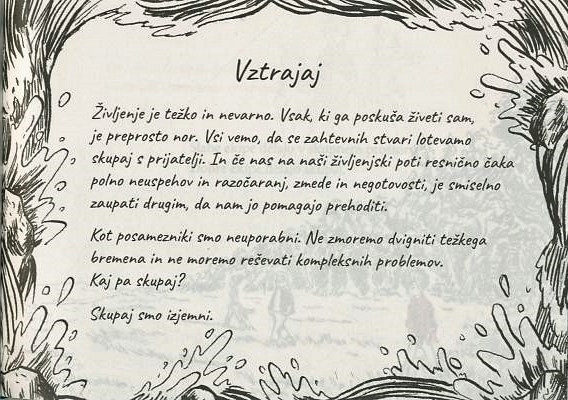 Vztrajaj
Življenje je težko in nevarno. Vsak, ki ga poskuša živeti sam,
je preprosto nor. Vsi vemo, da se zahtevnih stvari lotevamo
skupaj s prijatelji. In če nas na naši življenjski poti resnično čaka
polno neuspehov in razočaranj, zmede in negotovosti, je smiselno
zaupati drugim, da nam jo pomagajo prehoditi.
Kot posamezniki smo neuporabni. Ne zmoremo dvigniti težkega
bremena in ne moremo reševati kompleksnih problemov.
Kaj pa skupaj?
Skupaj smo izjemni.